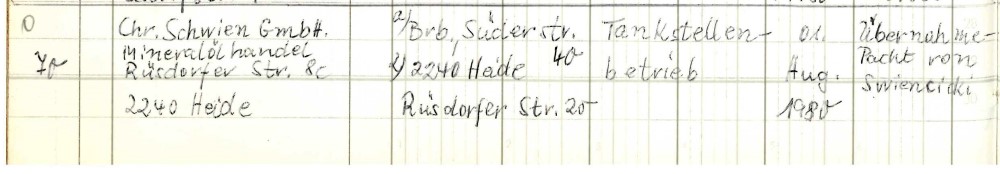 0 Chr. Schwien GmbH. a) Brb, Süderstr. 40 Tankstellen- 01. Übernahme-
70 Mineralölhandel b) 2240 Heide betrieb Aug. Pacht von
Rüsdorfer Str. 8c Swiencicki
2240 Heide Rüsdorfer Str. 20 1980